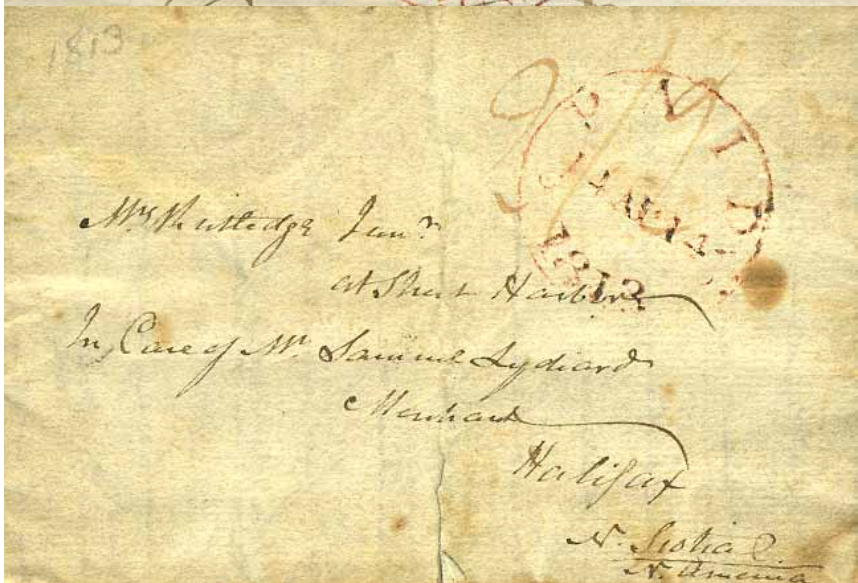 1813
PAID
14 AP 14
1813
Mrs Rutledge Junr
at Sheet Harbour
In Care of Mr Samuel Lydiard
Merchant
Halifax
N. Scotia
N. America